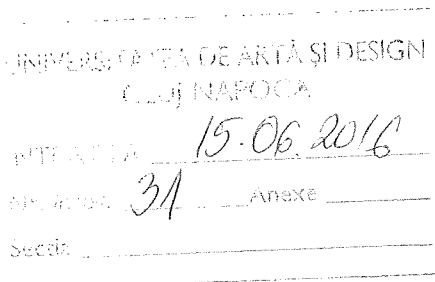 UNIVERSITATEA DE ARTĂ ȘI DESIGN
CLUJ NAPOCA
15.06.2016
31 Anexe
Secția